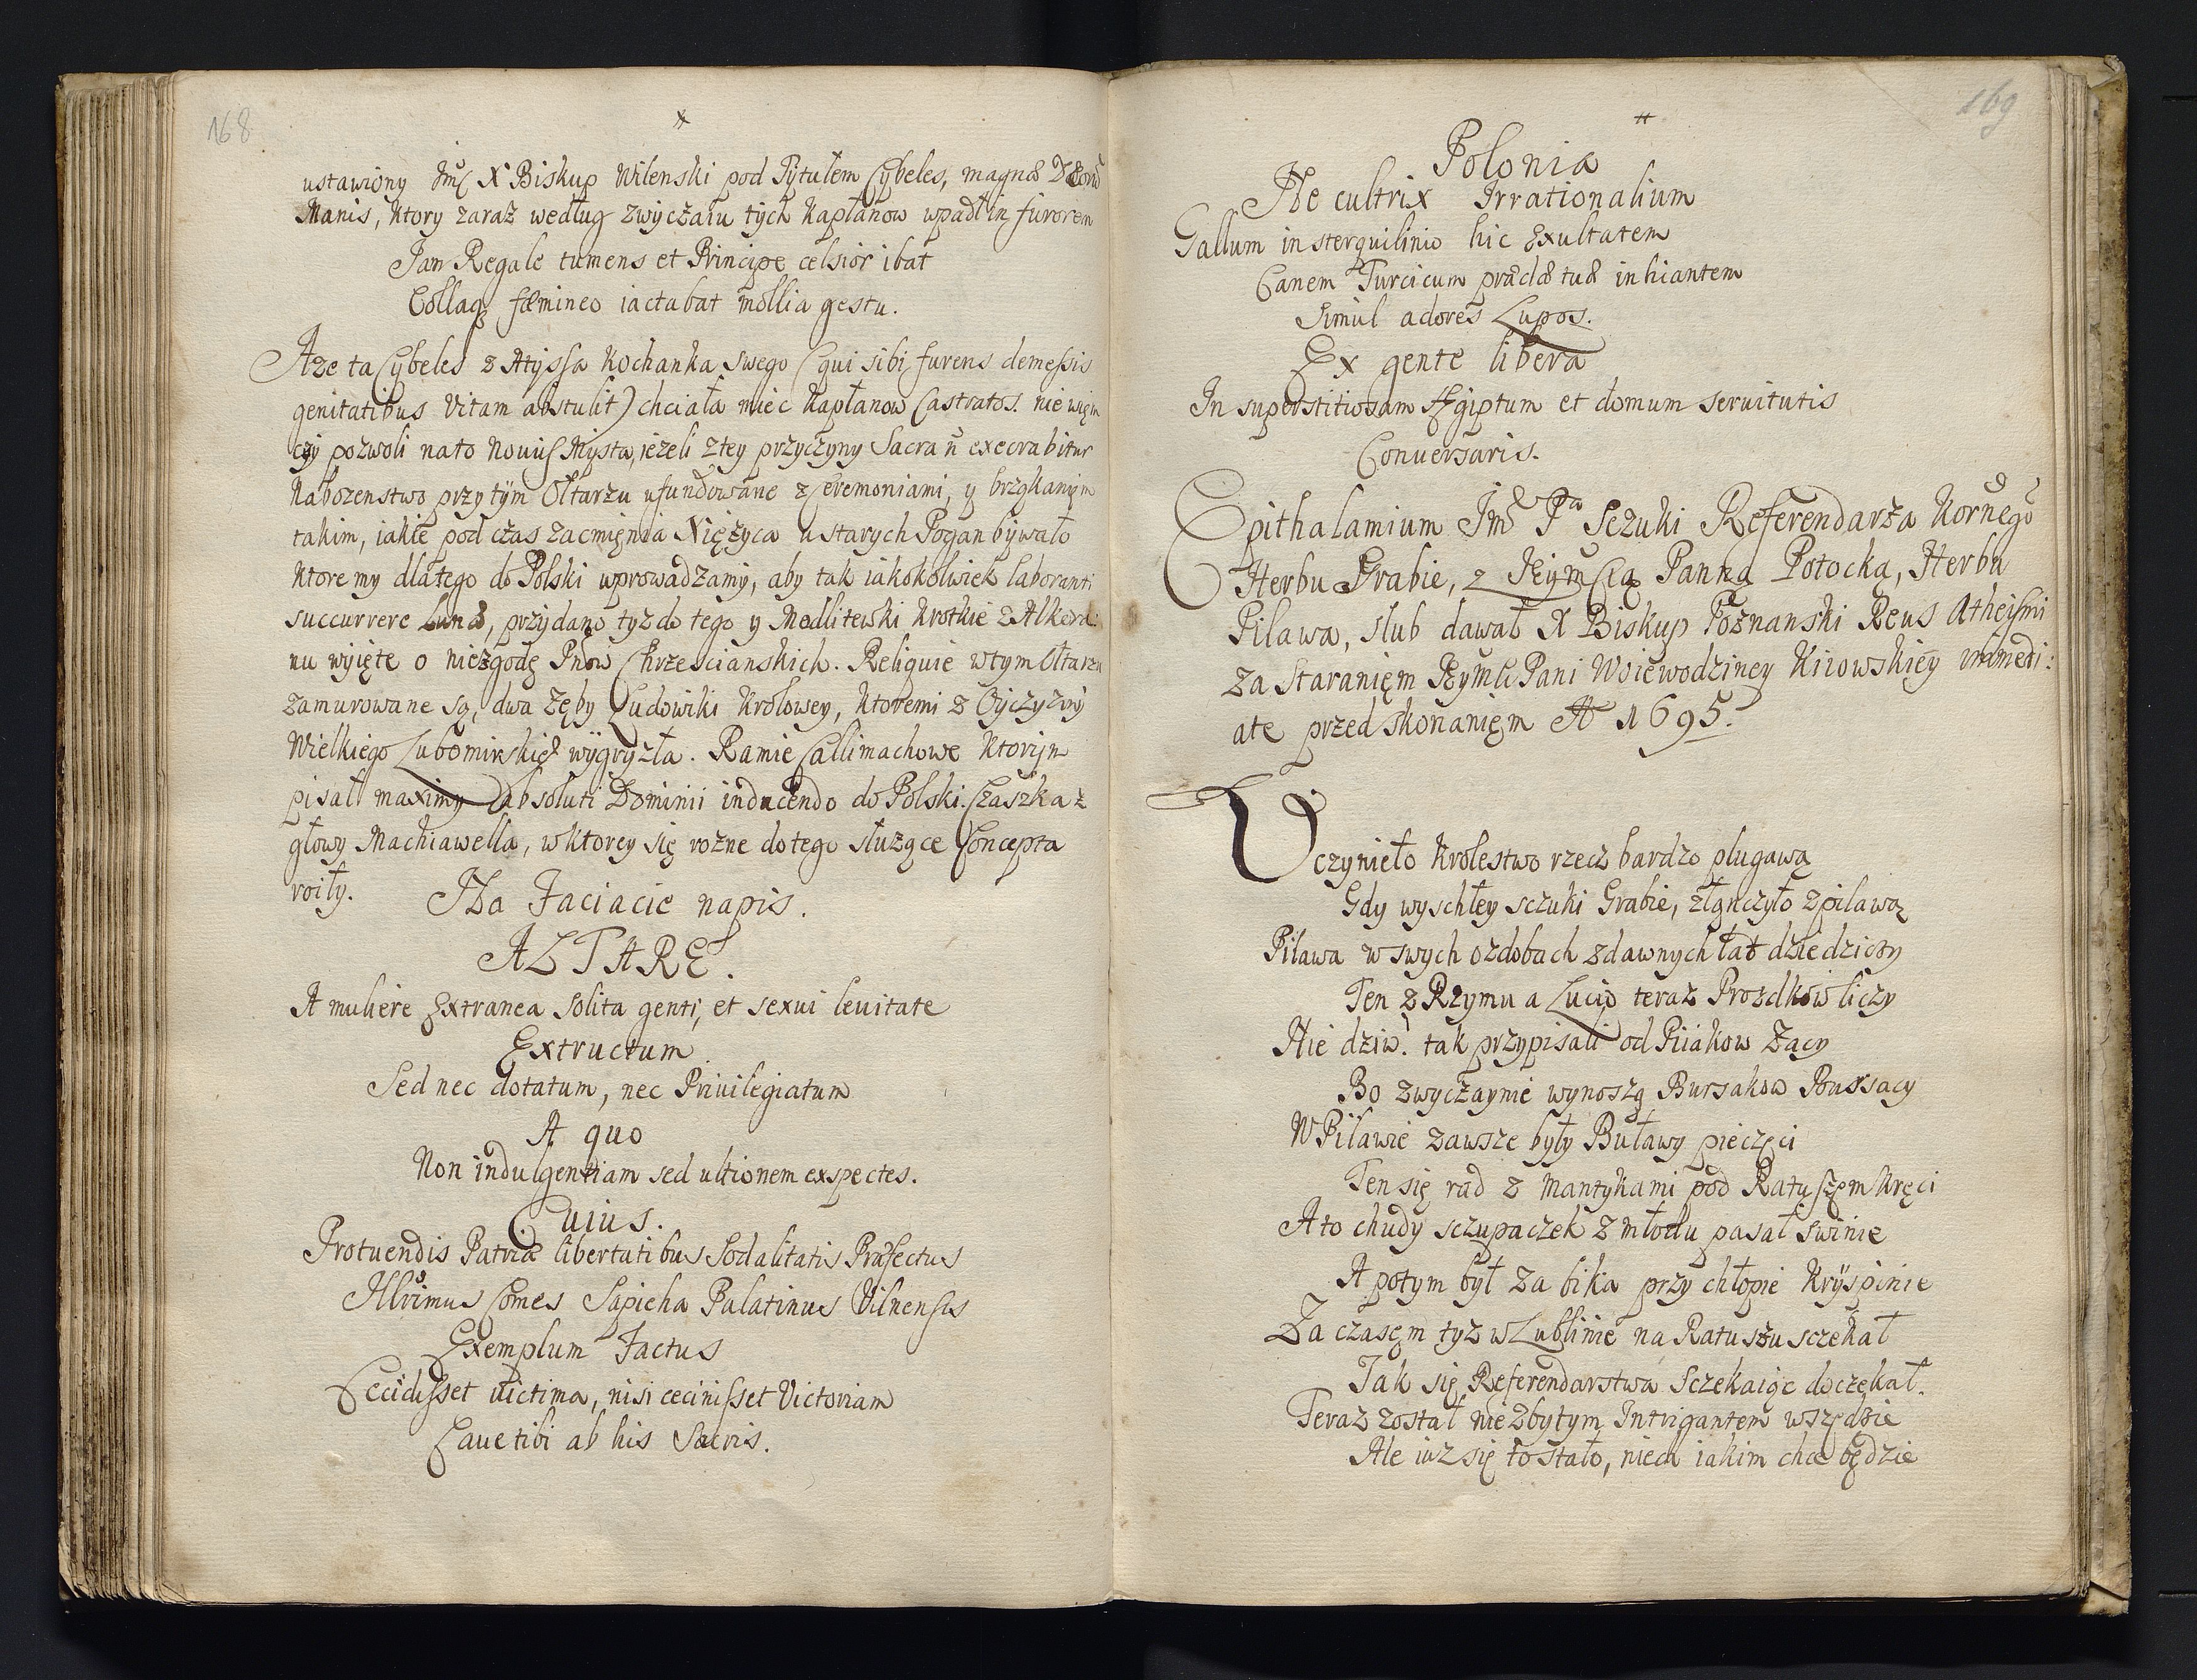 168
ustawiony Jmć X Biskup Wilenski pod Tytułem Cybeles, magnæ Deorũ
Manis, ktory zaraz według zwyczaiu tych kapłanow wpadł in furorem
Jam Regale tumens et Principe celsior ibat
Collaq; fæmineo iactabat mollia gestu.
Aże ta Cybeles z Atyssa kochanka swego (qui sibi furens demessis
genitatibus vitam abstulit) chciała miec kapłanow Castratos. nie wiem
czy pozwoli nato Nouus Mysta, ieżeli ztey przyczyny Sacra ñ execrabitur
Nabozenstwo przy tym Ołtarzu ufundowane z Ceremoniami, y brzękaniem
takim, iakie pod czas zacmięnia Xiężyca u starych Pogan bywało
ktore my dlatego do Polski wprowadzamy, aby tak iakokolwiek laboranti
succurrere Lunæ, przydano tyz do tego y Modlitewki krotkie z Alkora:
nu wyięte o niezgodę Pnow Chrzescianskich. Reliquie wtym Ołtarzu
zamurowane są, dwa zęby Ludowiki krolowey, ktoremi z Oyczyzny
Wielkiego Lubomirskieg wygryzła. Ramie Callimachowe ktorym
pisał maximy absoluti Dominii inducendo do Polski. Czaszka z
głowy Machiawella, wktorey się rozne dotego służące Concepta
roiły. Na Faciacie napis.
ALTARE.
A muliere Extranea solita genti, et sexui leuitate
Extructum
Sed nec dotatum, nec Priuilegiatum
A quo
Non indulgentiam sed ultionem exspectes.
Cuius.
Protuendis Patriæ libertatibus Sodalitatis Præfectus
Illrimus Comes Sapieha Palatinus Vilnensis
Exemplum Factus
Cecidisset uictima, nisi cecinisset Victoriam
Caue tibi ab his Sacris.
169
Polonia
Ne cultrix Irrationalium
Gallum in sterquilinio hic Exultatem
Canem Turcicum prædæ tuæ inhiantem
Simul adores Lupos.
Ex gente libera
In superstitiosam Ægiptum et domum seruitutis
Conuersaris.
Epithalamium Jmć Pa Sczuki Referendarza Kornego
Herbu Grabie, z Jeymćią Panną Potocką, Herbu
Pilawa, slub dawał X Biskup Poznanski Reus Atheismi
za Staranięm Jeymći Pani Woiewodziney Kiiowskiey immedi:
ate przed skonanięm A 1695.
Uczynieło krolestwo rzecz bardzo plugawą
Gdy wyschłey sczuki Grabie, złączyło zpilawą
Pilawa w swych ozdobach zdawnych łat dziedziczy
Ten z Rzymu a Lucip teraz Przodkow liczy
Nie dziw! tak przypisali od Piiakow Zacy
Bo zwyczaynie wynoszą Bursakow Bursacy
W Pilawie zawsze były Buławy pieczęci
Ten się rad z Mantykami pod Ratuszęm kręci
A to chudy sczupaczek z młodu pasał swinie
A potym był za bika przy chłopie Kryspinie
Za czasęm tyz w Lublinie na Ratuszu sczekał
Jak się Referendarstwa Sczekaiąc doczekał.
Teraz został niezbytym Intrigantem wszędzie
Ale iuz się to stało, niech iakim chce będzie